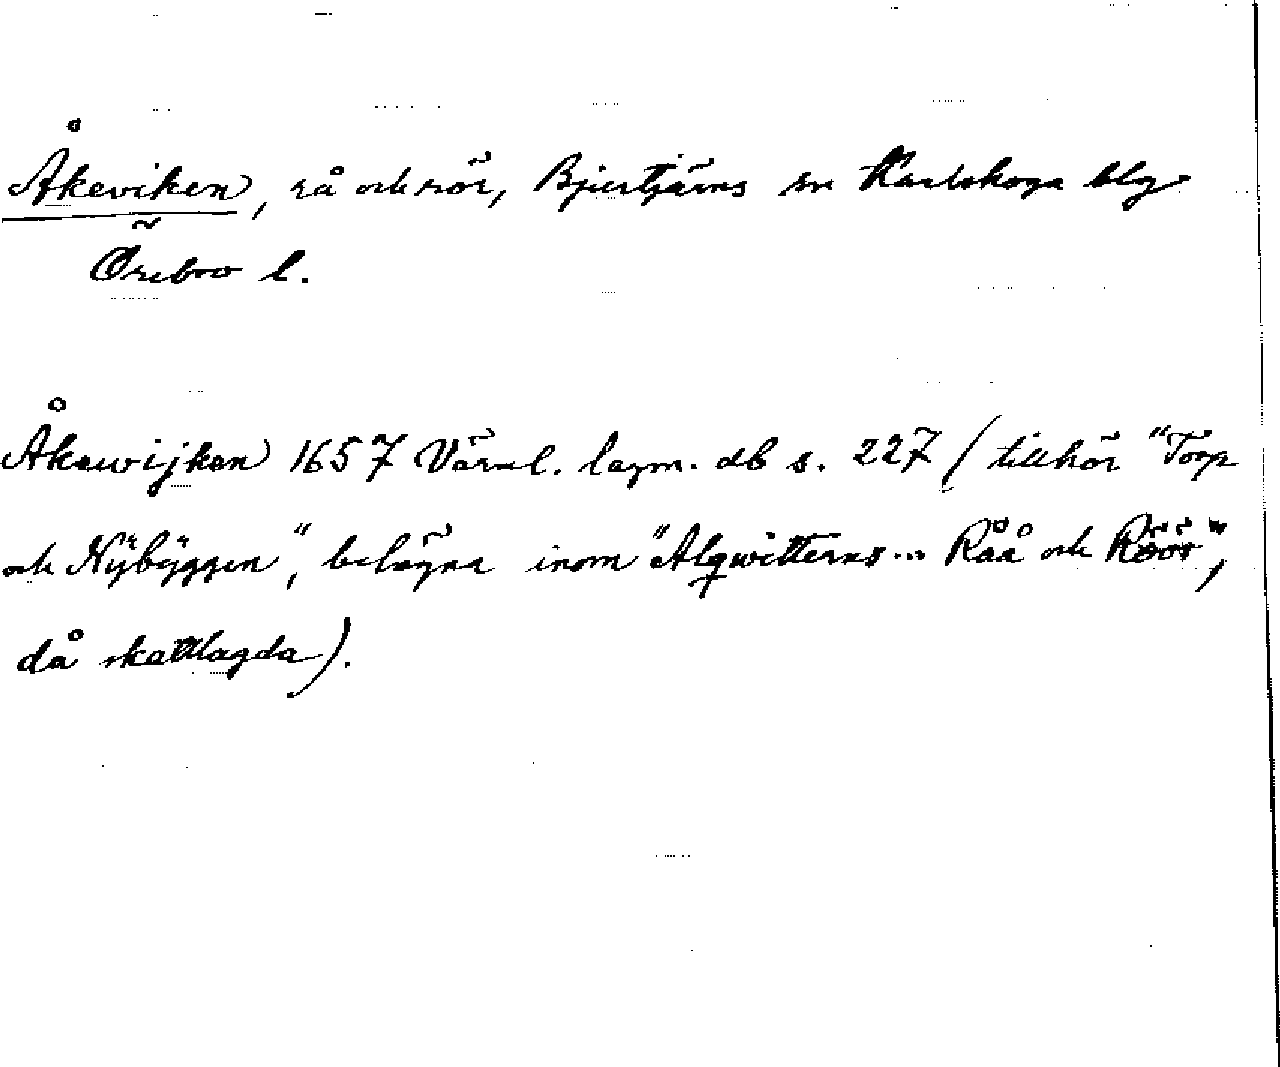 Åkeviken, rå och rör, Bjurtjärns sn Karlskoga blg
Örebro l.
Åkewijken 1657 Värml. lagm. db s. 227 (tillhör "Torp
och Nÿbÿggen", belägna inom "Alqwitterns... Råå och Röös",
då skattlagda).